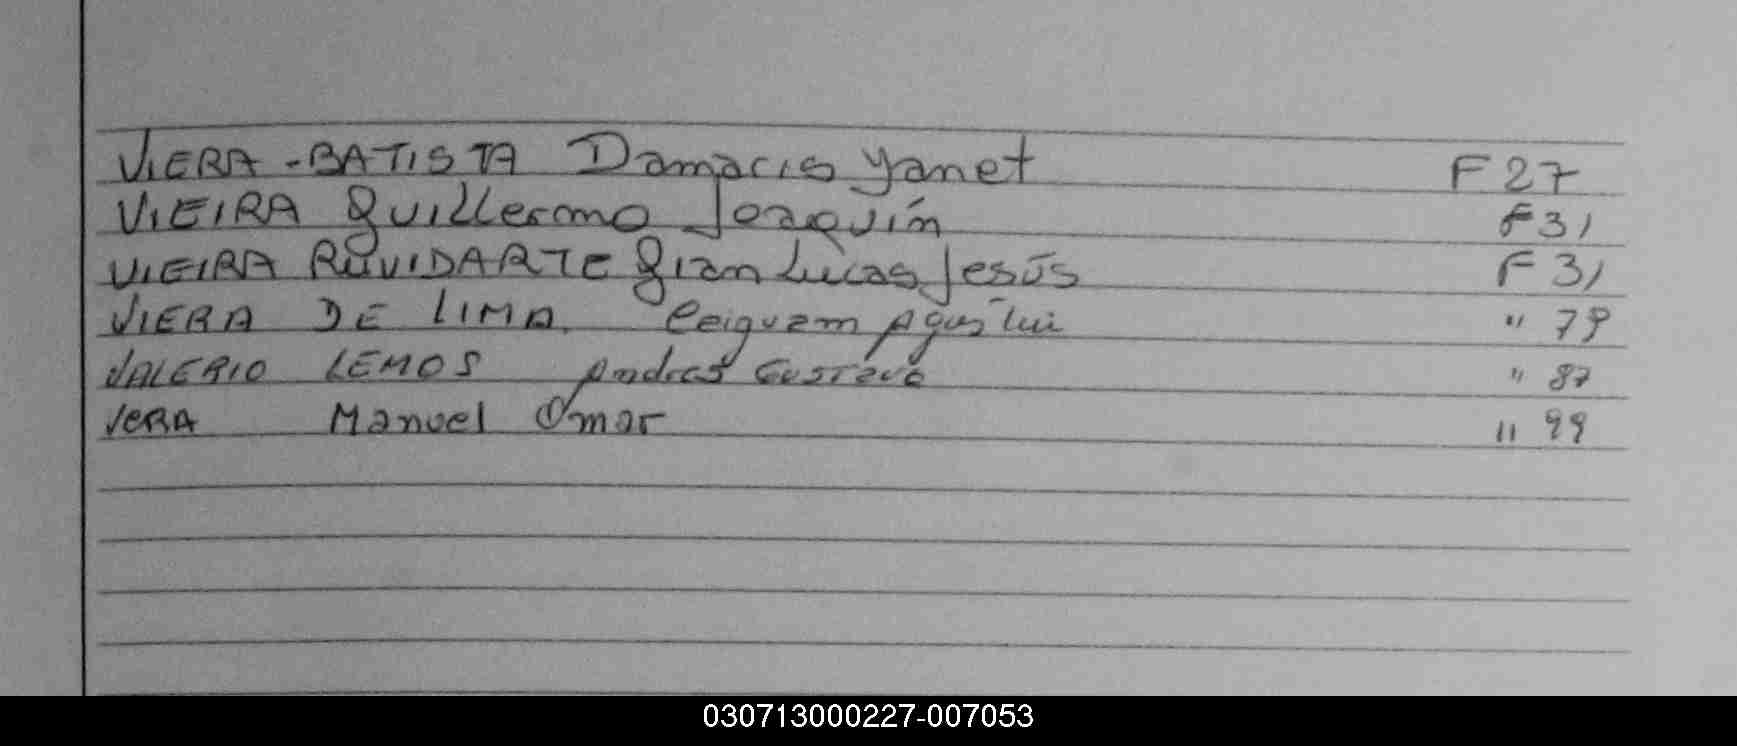 VIERA-BATISTA Damacis Yanet F 27
VIEIRA Guillermo Joaquín F 31
VIEIRA RUVIDARTE Gian Lucas Jesús F 31
VIERA DE LIMA. Agustin " 79
VALERIO LEMOS Andres Gustavo " 87
VERA Manuel Omar " 99
030713000227-007053